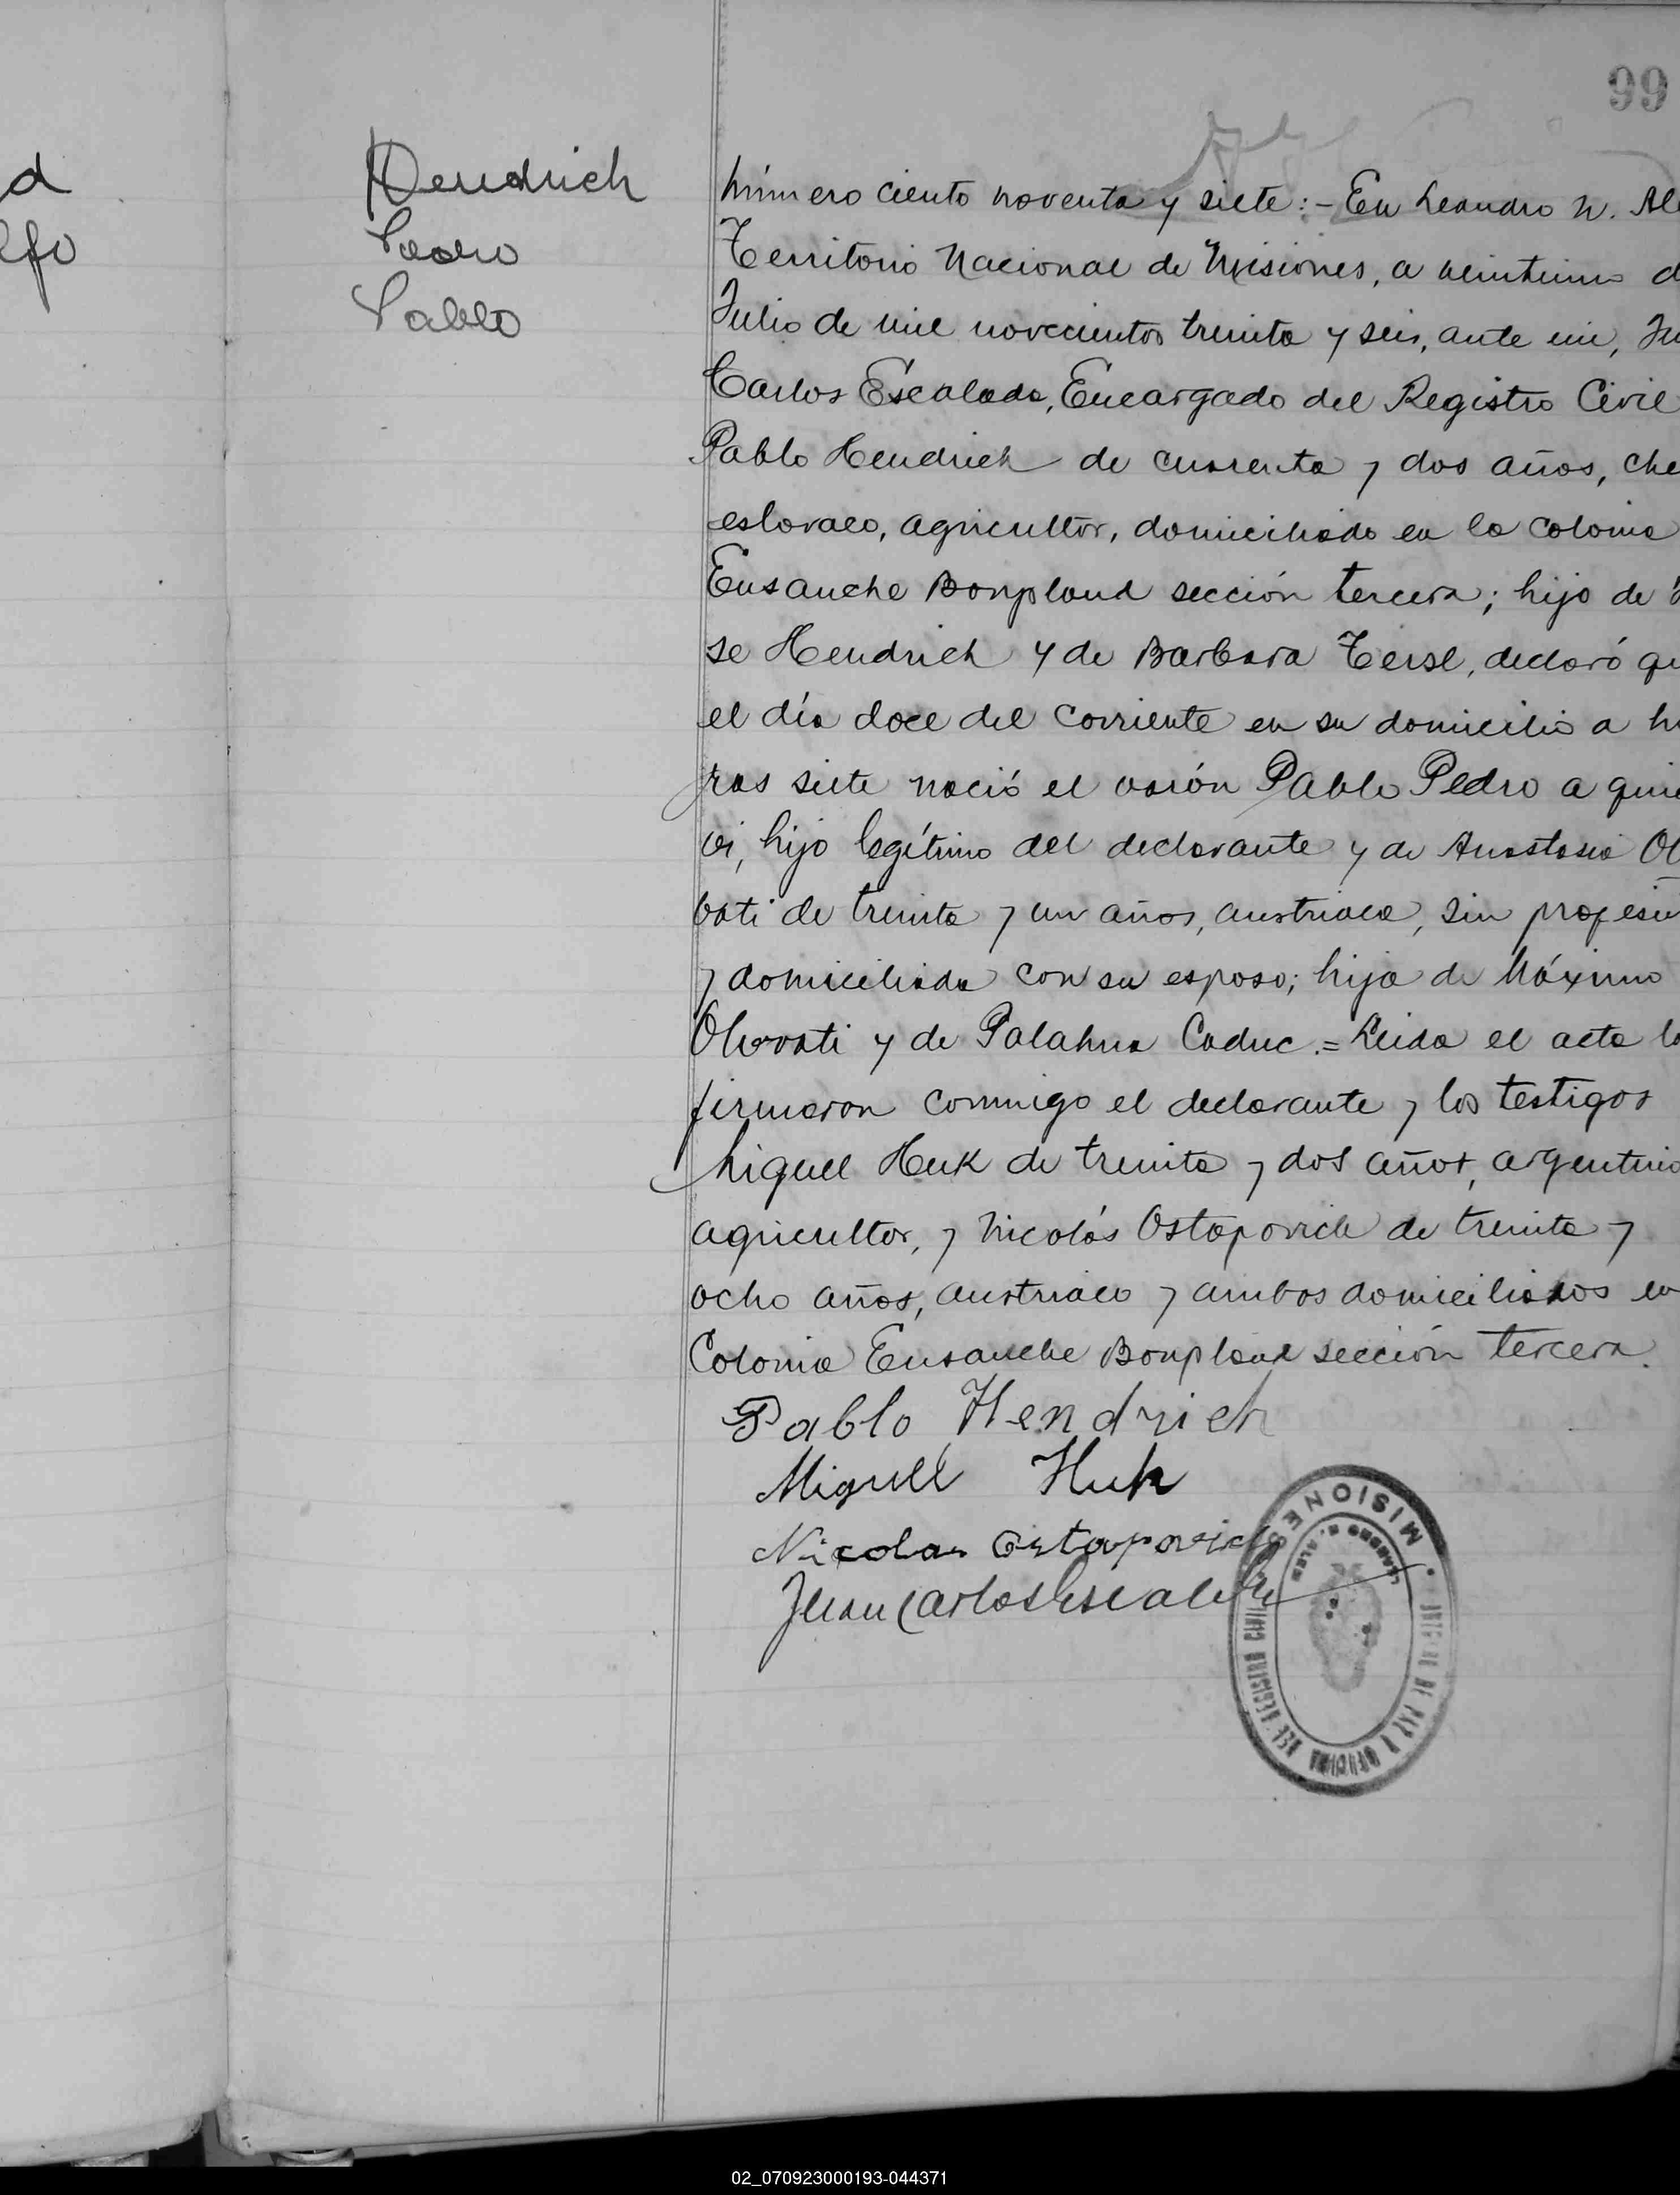 99
d
lfo
Hendrich
Pedro
Pablo
Número ciento noventa y siete:- En Leandro N. Ale
Territorio Nacional de Misiones, a veintiuno d
Julio de mil novecientos treinta y seis, ante mi, Ju
Carlos Escalada, Encargado del Registro Civil
Pablo Hendrich de cuarenta y dos años, che
eslovaco, agricultor, domiciliado en la colonia
Ensanche Bonpland sección tercera; hijo de
se Hendrich y de Barbara Teisl, declaró qu
el día doce del corriente en su domicilio a ho
ras siete nació el varón Pablo Pedro a quie
vi, hijo legítimo del declarante y de Anastasia Ol
vati de treinta y un años, austriaca, sin profesió
y domiciliada con su esposo; hija de Máximo
y de Palahna Caduc.= Leida el acta la
firmaron conmigo el declarante y los testigos
Miguel Huk de treinta y dos años, argentino
agricultor, y Nicolás Ostapovich de treinta y
ocho años, austriaco y ambos domiciliados en
Colonia Ensanche Bonpland sección tercera.
Pablo Hendrich
Miguel Huk
Nicolas Ostapovich
Juan Carlos Escalada
MISIONES
LEANDRO N. ALEM
JUZGADO DE PAZ Y OFICINA DEL REGISTRO CIVIL
02_070923000193-044371